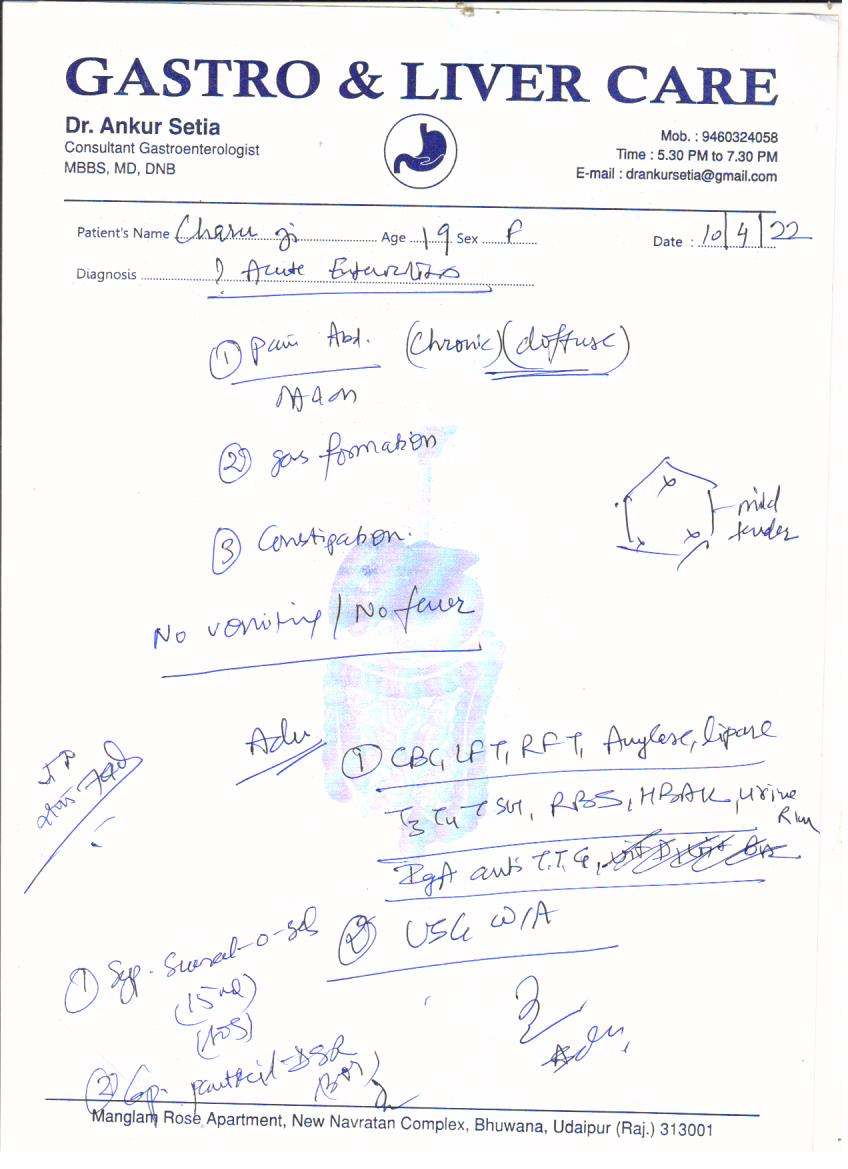 GASTRO & LIVER CARE
Dr. Ankur Setia
Consultant Gastroenterologist
MBBS, MD, DNB
Mob. : 9460324058
Time : 5.30 PM to 7.30 PM
E-mail : drankursetia@gmail.com
Patient's Name Charu ji Age 19 Sex F Date : 10/4/22
Diagnosis ? Acute
① Pain Abd. (Chronic) (diffuse)
② gas formation
③ Constipation.
mild
tender
No vomiting / No fever
Adv
① CBC, LFT, RFT, Amylase, lipase
T3 T4 TSH, RBS, HBA1C, urine R/M
IgA anti T.T.G,
② USG W/A
① Syp.
(15 ml)
② Cap.
Manglam Rose Apartment, New Navratan Complex, Bhuwana, Udaipur (Raj.) 313001